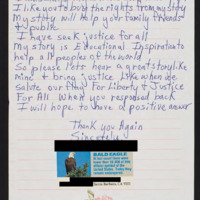 I like you to buy the rights from my story
My story will Help your family friends
& public.
I have seek justice for all
My story is Educational Inspiration to
help all people of the world
So please Petr hear a great story like
mine & bring justice like when we
salute our flag For Liberty & Justice
For All When you respond back
I will hope to have a positive answer
Thank you Again
Sincerely
BALD EAGLE
Santa Barbara, CA